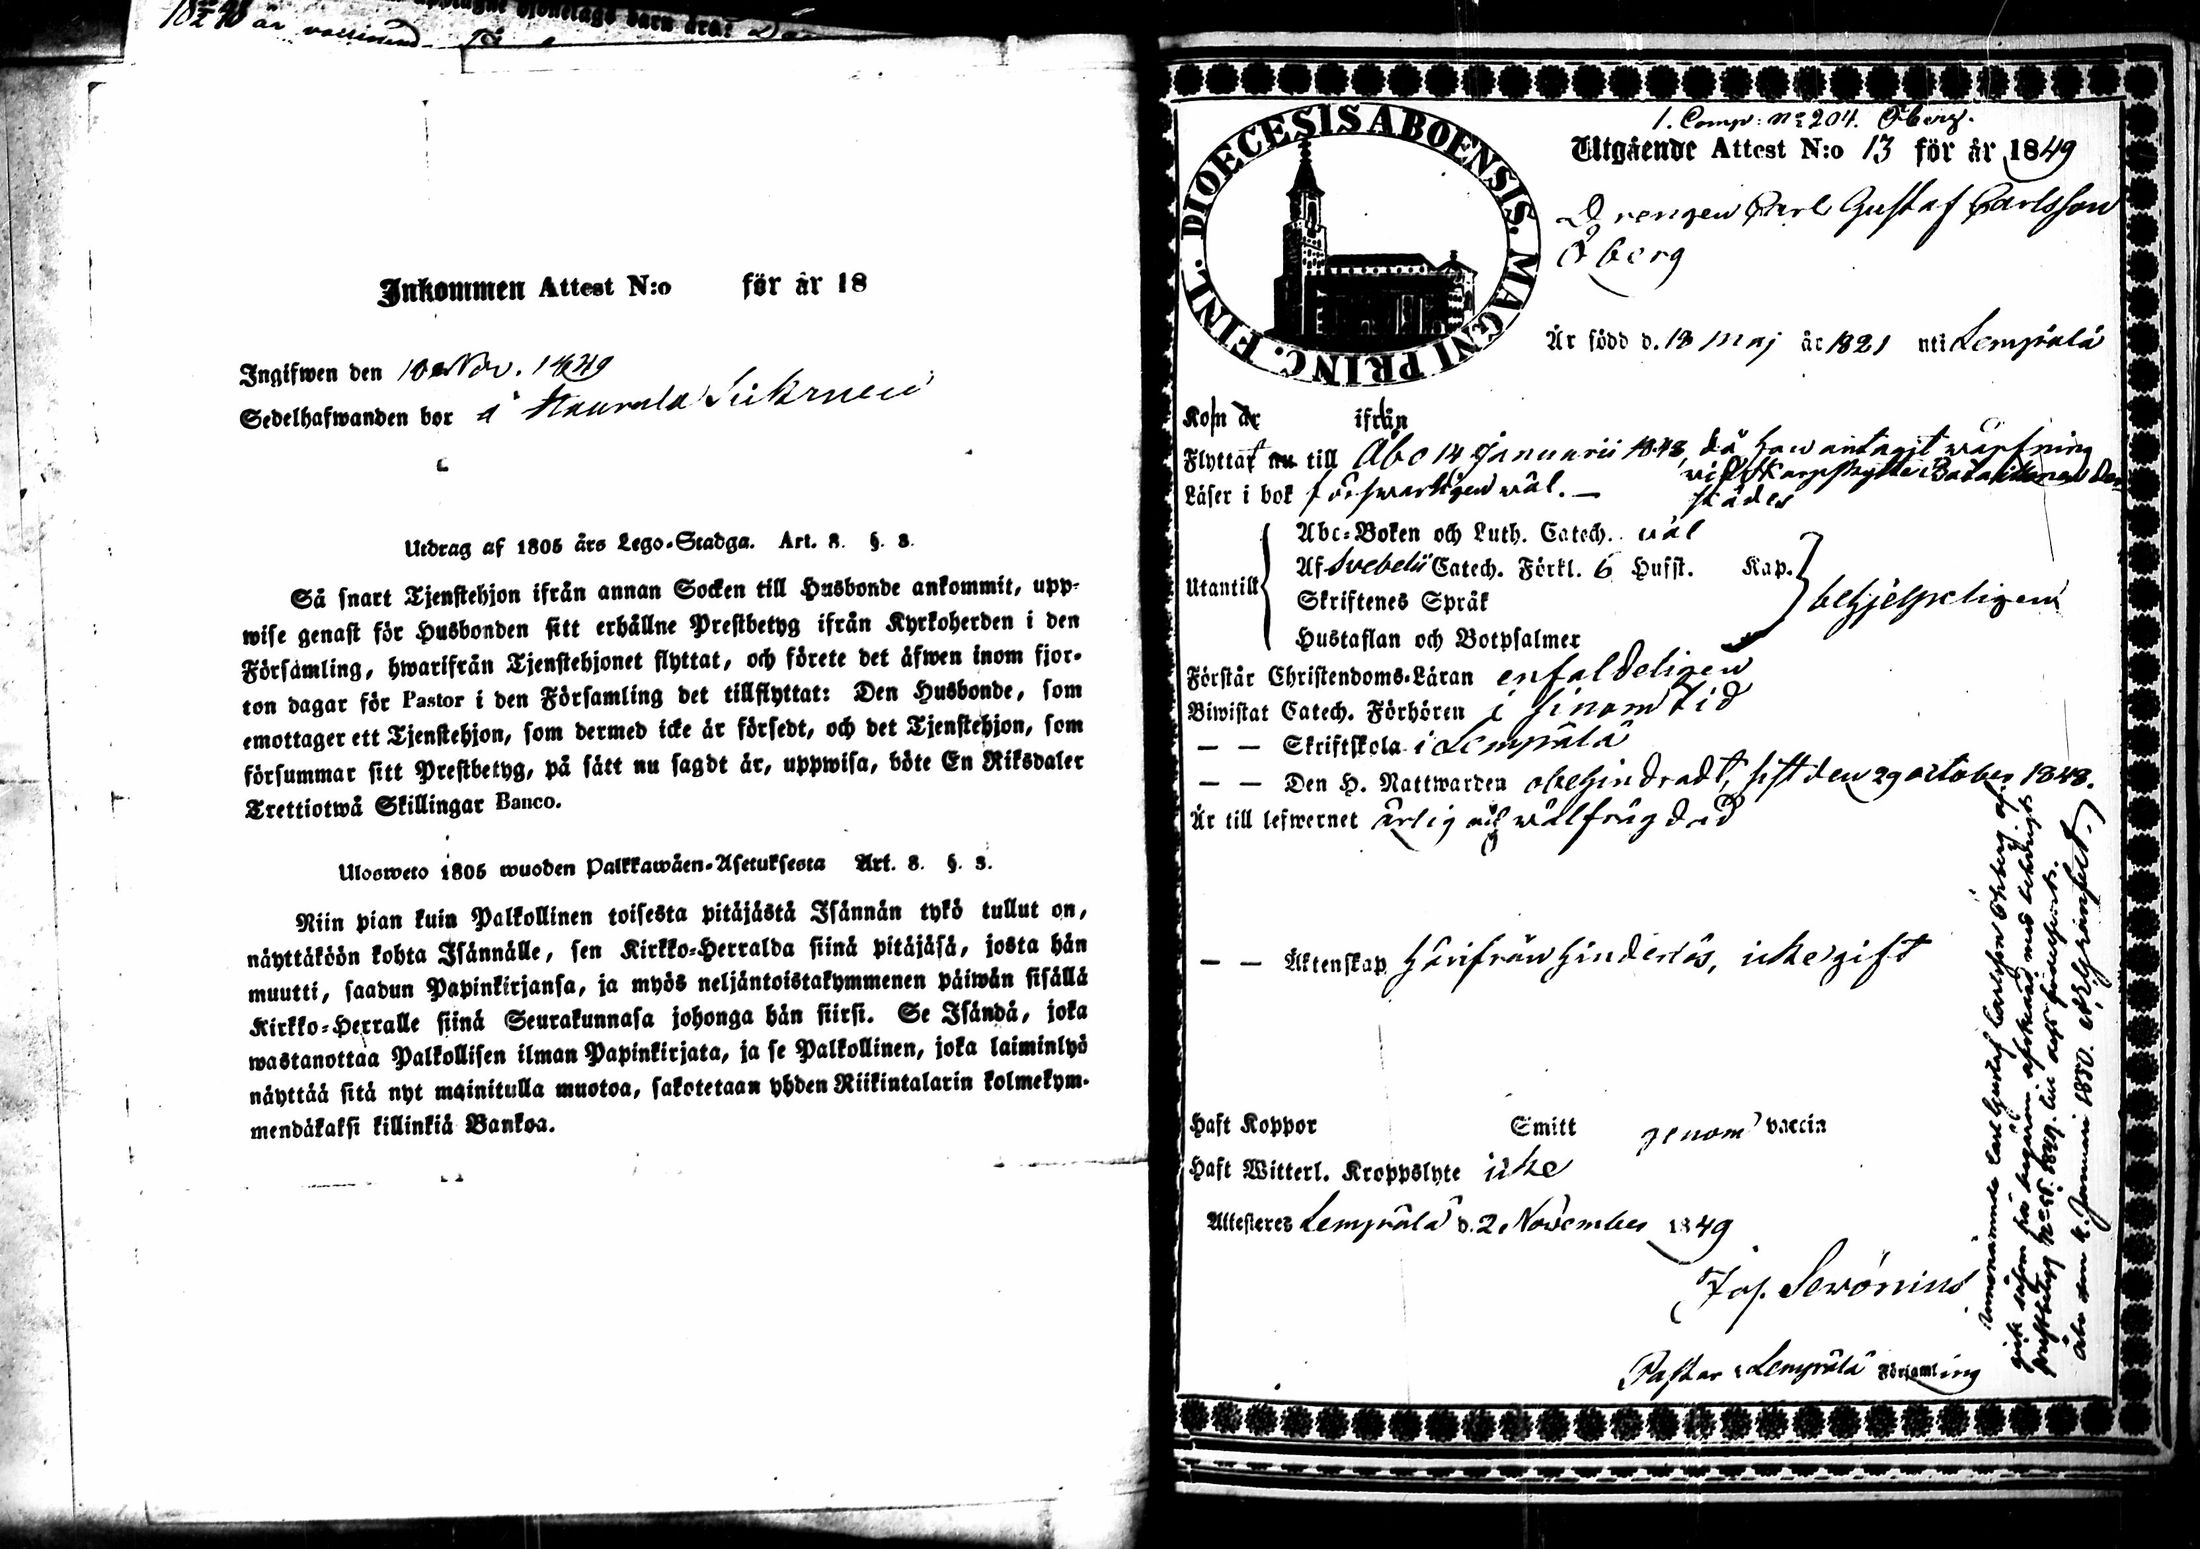 är
Inkommen Attest N:o för år 18
Ingifwen den 10 Nov. 1849
Sedelhafwanden bor å
Utdrag af 1805 års Lego-Stadga. Art. 8. §. 3.
Så snart Tjenstehjon ifrån annan Socken till Husbonde ankommit, upp-
wise genast för Husbonden sitt erhållne Prestbetyg ifrån Kyrkoherden i den
Församling, hwarifrån Tjenstehjonet flyttat, och förete det äfwen inom fjor-
ton dagar för Pastor i den Församling det tillflyttat: Den Husbonde, som
emottager ett Tjenstehjon, som dermed icke är försedt, och det Tjenstehjon, som
försummar sitt Prestbetyg, på sätt nu sagdt är, uppwisa, böte En Riksdaler
Trettiotwå Skillingar Banco.
Ulosweto 1805 wuoden Palkkawäen-Asetuksesta Art. 8. §. 3.
Niin pian kuin Palkollinen toisesta pitäjästä Isännän tykö tullut on,
näyttäköön kohta Isännälle, sen Kirkko-Herralda siinä pitäjäsä, josta hän
muutti, saadun Papinkirjansa, ja myös neljäntoistakymmenen päiwän sisällä
Kirkko-Herralle siinä Seurakunnasa johonga hän siirsi. Se Isändä, joka
wastanottaa Palkollisen ilman Papinkirjata, ja se Palkollinen, joka laiminlyö
näyttää sitä nyt mainitulla muotoa, sakotetaan yhden Riikintalarin kolmekym-
mendäkaksi killinkiä Bankoa.
DIOECESIS ABOENSIS. MAGNI PRINC. FINL.
1. Comp: No 204. Öberg.
Utgående Attest N:o 13 för år 1849
Drengen Carl Gustaf Carlsson
Öberg
Är född d. 13 Maj år 1821 uti Lempälä
Kom år ifrån
Flyttat nu till Åbo 14 Januarii 1848, då han antagit wärfning
wid Skarpskytte Bataillonen der-
Läser i bok förswarligen wäl. — städes
Utantill
Abc-Boken och Luth. Catech. wäl
Af Svebelii Catech. Förkl. 6 Hufst. Kap.
Skriftenes Språk
Hustaflan och Botpsalmer
behjelpeligen
Förstår Christendoms-Läran enfaldeligen
Biwistat Catech. Förhören i sinom tid
— — Skriftskola i Lempälä
— — Den H. Nattwarden obehindradt, sist den 29 october 1848.
Är till lefwernet ärlig och wälfrägdad
— — Äktenskap härifrån hinderlös, icke gift
Haft Koppor Smitt genom vaccin
Haft Witterl. Kroppslyte icke
Attesteres Lempälä d. 2 November 1849
Jos. Serönius
Pastor i Lempälä Församling
Carl Gustaf Carlsson Öhberg af-
gick
prestbetyg No 25. 1849.
Åbo den 4 Januari 1850.